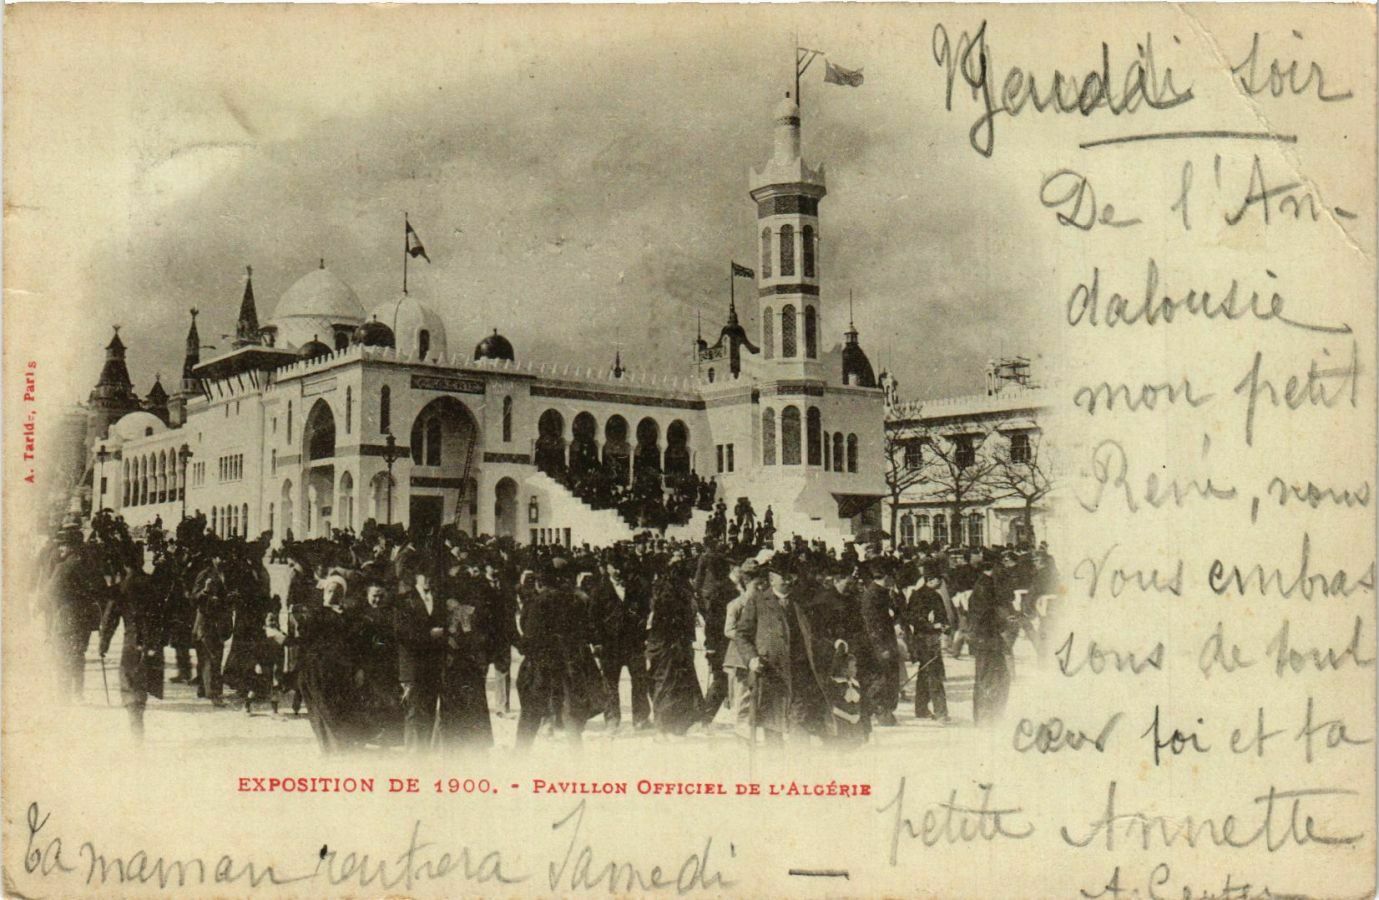 soir
De l'An-
dalousie
mon petit
René, nous
vous embras
sons de tout
cœur toi et ta
petite Annette
EXPOSITION DE 1900. - PAVILLON OFFICIEL DE L'ALGÉRIE
Ta maman rentrera Samedi —
A. Taride, Paris